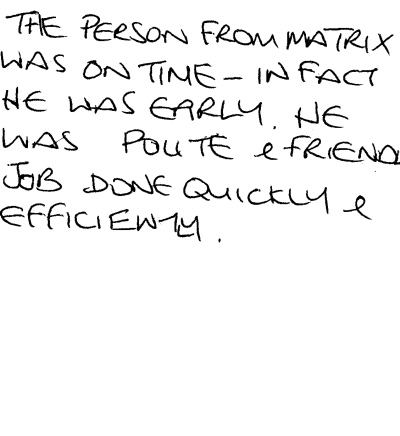 THE PERSON FROM MATRIX
WAS ON TIME - IN FACT
HE WAS EARLY. HE
WAS POLITE & FRIEND
JOB DONE QUICKLY &
EFFICIENTLY.